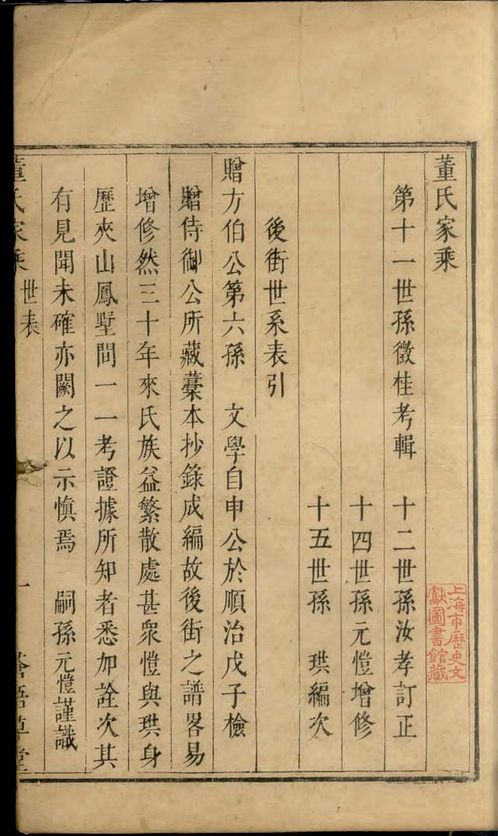 董氏家乘
第十一世孫徵桂考輯　十二世孫汝孝訂正
十四世孫元愷增修
十五世孫　珙編次
後街世系表引
贈方伯公第六孫　文學自申公於順治戊子檢
贈侍御公所藏藁本抄錄成編故後街之譜畧易
增修然三十年來氏族益繁散處甚衆愷與珙身
歷夾山鳳墅間一一考證據所知者悉加詮次其
有見聞未確亦闕之以示慎焉　嗣孫元愷謹識
董氏家乘　世表　一
草堂
上海市歷史文
獻圖書館藏